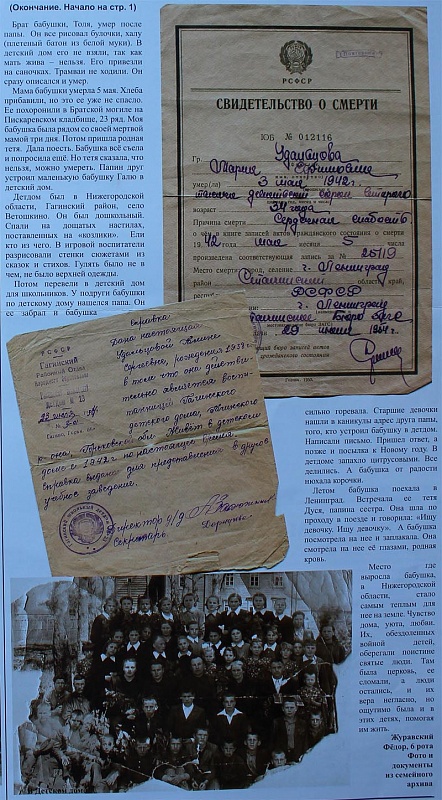 (Окончание. Начало на стр. 1)
Брат бабушки, Толя, умер после
папы. Он все рисовал булочки, халу
(плетеный батон из белой муки). В
детский дом его не взяли, так как
мать жива – нельзя. Его привезли
на саночках. Трамваи не ходили. Он
сразу описался и умер.
Мама бабушки умерла 5 мая. Хлеба
прибавили, но это ее уже не спасло.
Ее похоронили в Братской могиле на
Пискаревском кладбище, 23 ряд. Моя
бабушка была рядом со своей мертвой
мамой три дня. Потом пришла родная
тетя. Дала поесть. Бабушка всё съела
и попросила ещё. Но тетя сказала, что
нельзя, можно умереть. Папин друг
устроил маленькую бабушку Галю в
детский дом.
Детдом был в Нижегородской
области, Гагинский район, село
Ветошкино. Он был дошкольный.
Спали на дощатых настилах,
поставленных на «козлики». Ели
кто из чего. В игровой воспитатели
разрисовали стенки сюжетами из
сказок и стихов. Гулять было не в
чем, не было верхней одежды.
Потом перевели в детский дом
для школьников. У подруги бабушки
по детскому дому нашелся папа. Он
ее забрал и бабушка
РСФСР
СВИДЕТЕЛЬСТВО О СМЕРТИ
ЮБ № 012116
Гр.
Мария
умер(ла) 3 мая 1942 г.
возраст 34 года
Причина смерти Сердечная слабость
о чем в книге записей актов гражданского состояния о смерти
19 42 года мая месяца 5 числа
произведена соответствующая запись за № 25119
Место смерти: город, селение г. Ленинград
область, край
республика РСФСР
г. Ленинград
бюро загс
29 1964 г.
Справка
РСФСР
Гагинский
Районный Отдел
Дана настоящая
Удальцовой Галине
Сергеевне, рождения 1938 г.
в том что она действи-
тельно является воспи-
танницей Гагинского
детского дома, Гагинского
р-она, Горьковской обл. Живёт в детском
доме с 1942 г. по настоящее время
Справка выдана для представления в другое
учебное заведение.
Директор д/д
Секретарь
сильно горевала. Старшие девочки
нашли в каникулы адрес друга папы,
того, кто устроил бабушку в детдом.
Написали письмо. Пришел ответ, а
позже и посылка к Новому году. В
детдоме запахло цитрусовыми. Все
делили. А бабушка от радости
нюхала корочки.
Летом бабушка поехала в
Ленинград. Встречала ее тетя
Дуся, папина сестра. Она шла по
проходу в поезде и говорила: «Ищу
девочку. Ищу девочку». А бабушка
посмотрела на нее и заплакала. Она
смотрела на нее её глазами, родная
кровь.
Место где
выросла бабушка,
в Нижегородской
области, стало
самым теплым для
нее на земле. Чувство
дома, уюта, любви.
Их, обездоленных
войной детей,
оберегали поистине
святые люди. Там
была церковь, ее
сломали, а люди
остались, и их
вера негласно, но
ощутимо была и в
этих детях, помогая
им жить.
Журавский
Фёдор, 6 рота
Фото и
документы
из семейного
архива
В Детском доме